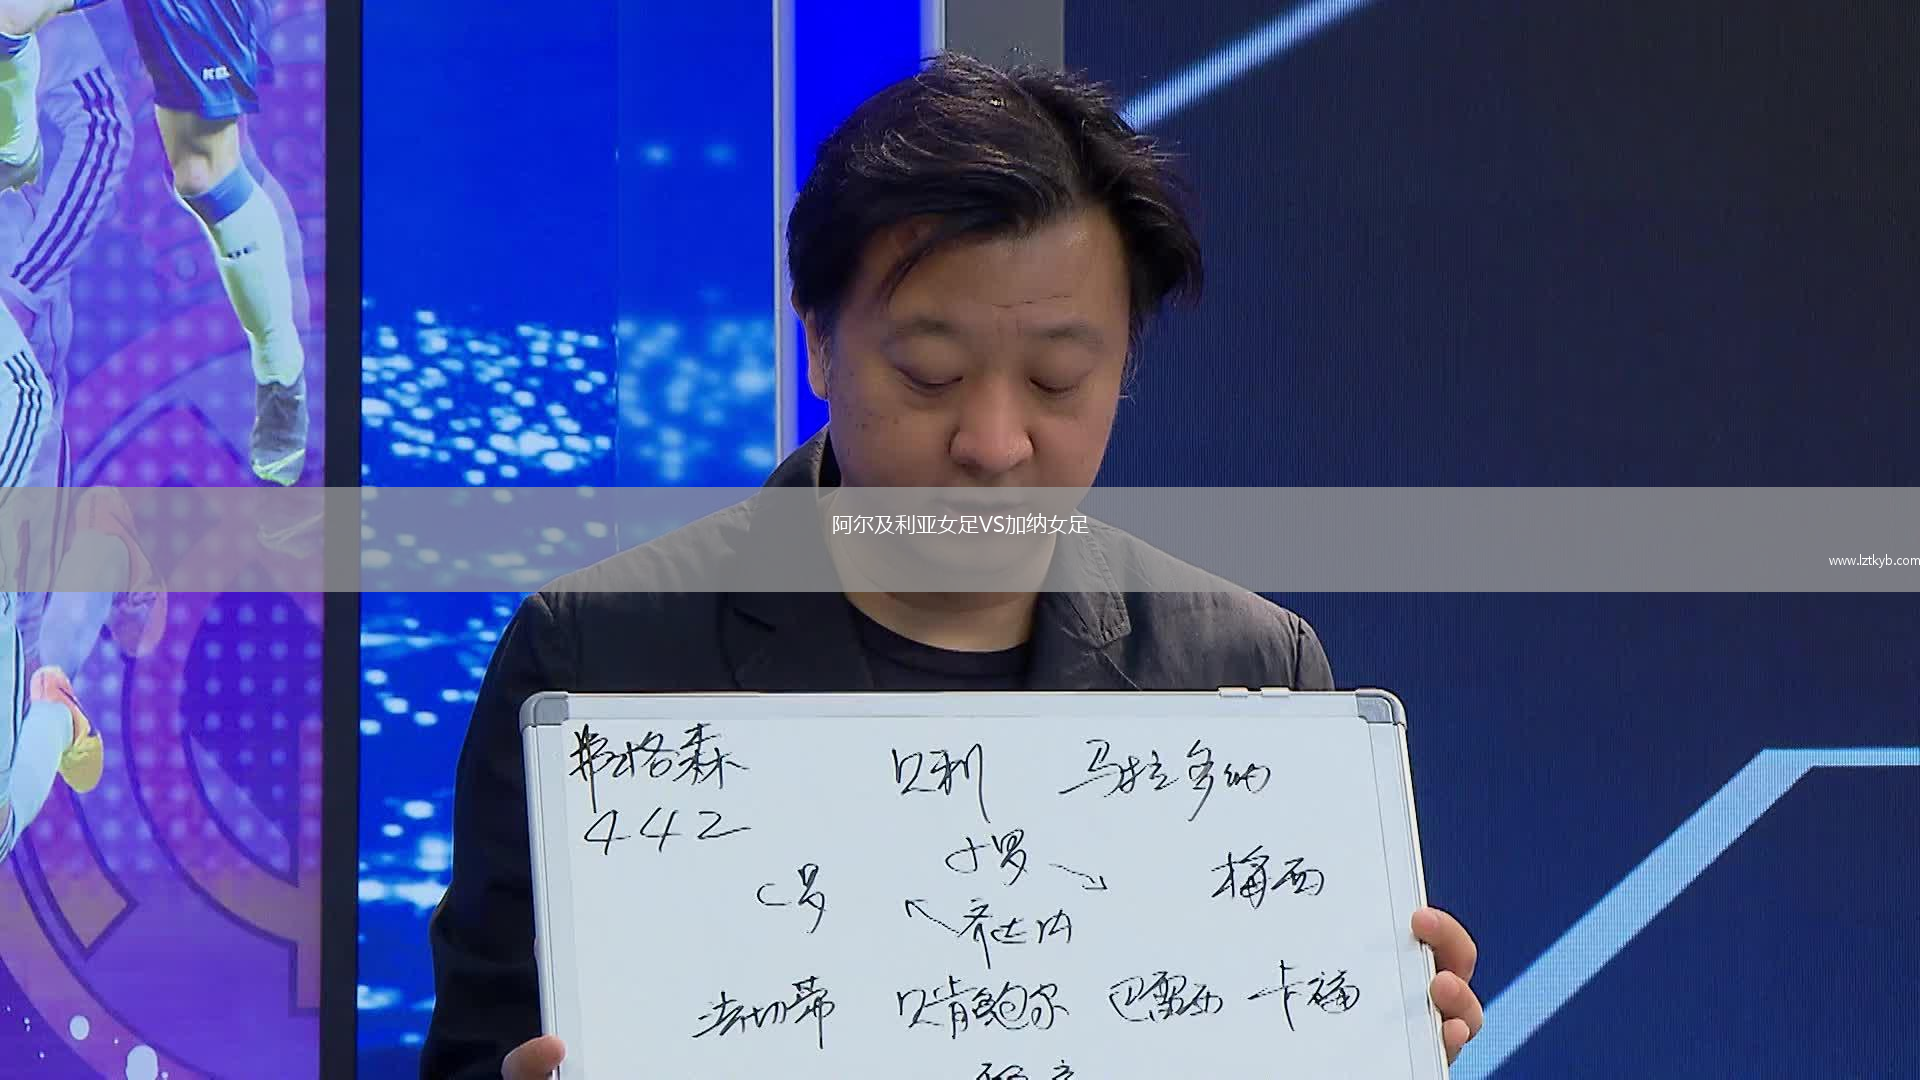 阿尔及利亚女足VS加纳女足
www.lztkyb.com
弗格森 贝利 马拉多纳
442
小罗
C罗 梅西
齐达内
法切蒂 贝肯鲍尔 巴雷西 卡福